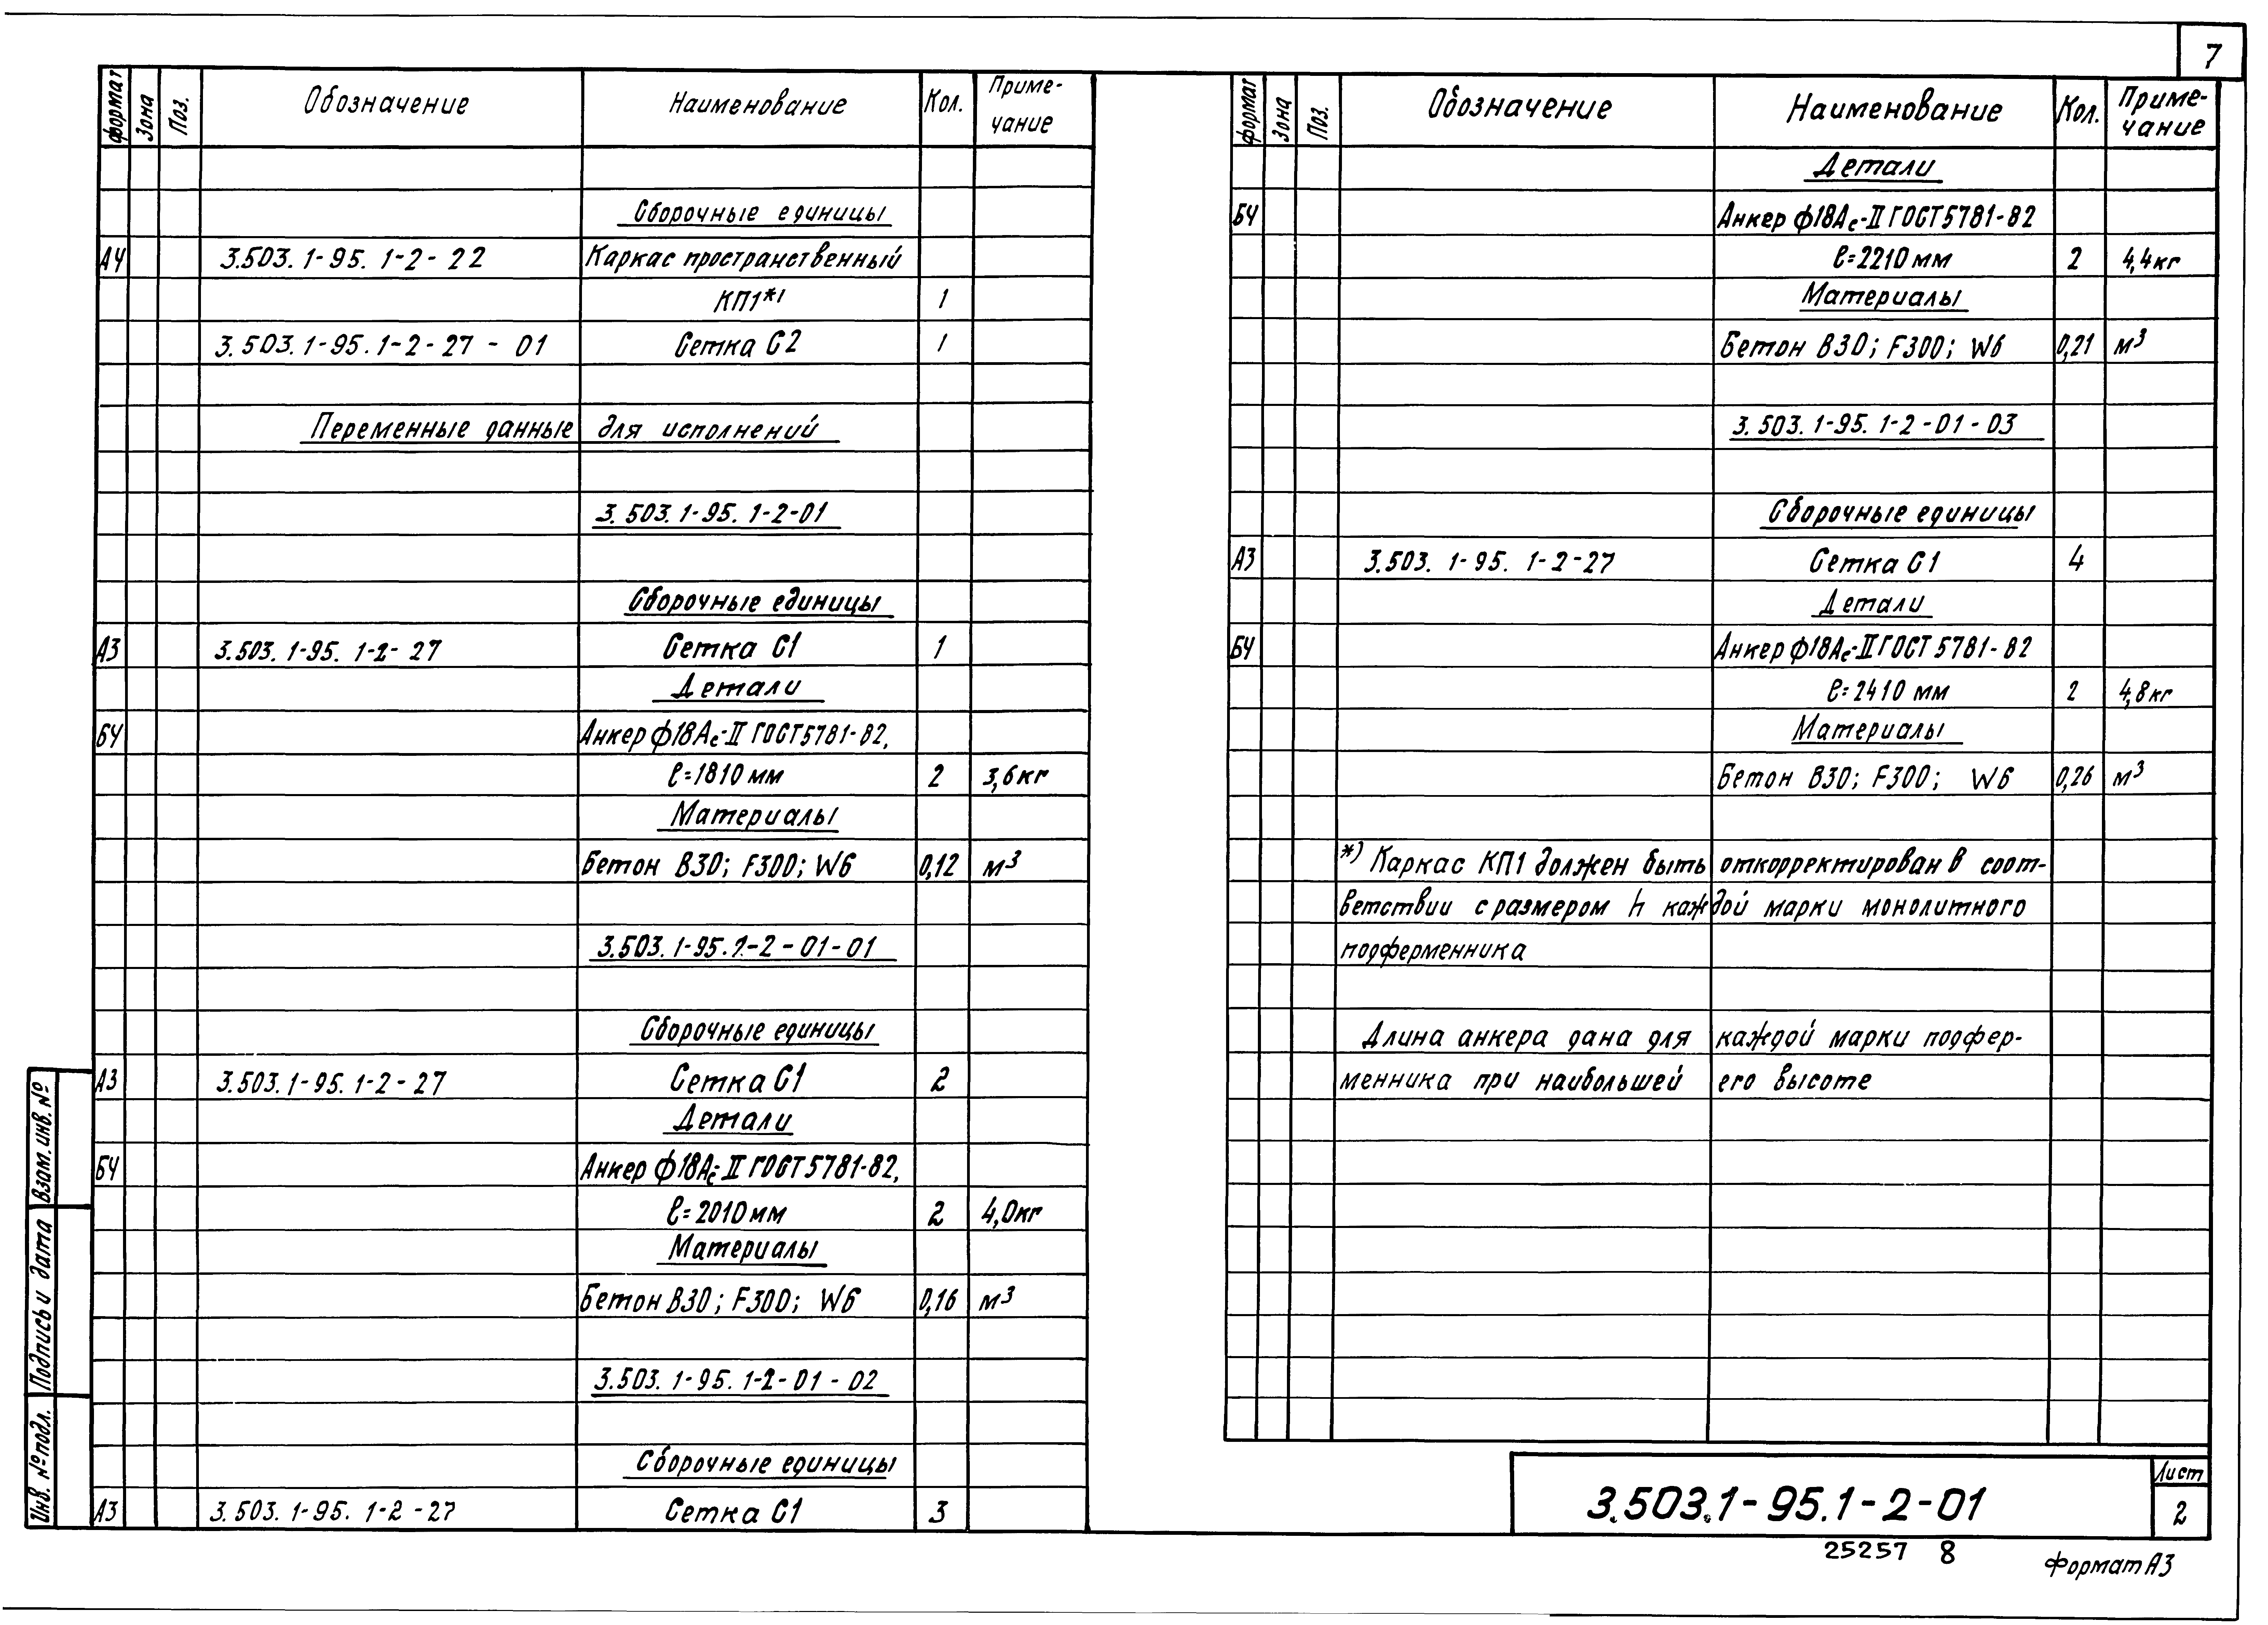 7
формат Зона Поз. Обозначение Наименование Кол. Приме-
чание
Сборочные единицы
А4 3.503.1-95.1-2-22 Каркас пространственный
КП1*) 1
3.503.1-95.1-2-27-01 Сетка С2 1
Переменные данные для исполнений
3.503.1-95.1-2-01
Сборочные единицы
А3 3.503.1-95.1-2-27 Сетка С1 1
Детали
БЧ Анкер ф18Ас-II ГОСТ 5781-82,
l=1810 мм 2 3,6 кг
Материалы
Бетон В30; F300; W6 0,12 м³
3.503.1-95.1-2-01-01
Сборочные единицы
А3 3.503.1-95.1-2-27 Сетка С1 2
Детали
БЧ Анкер ф18Ас-II ГОСТ 5781-82,
l=2010 мм 2 4,0 кг
Материалы
Бетон В30; F300; W6 0,16 м³
3.503.1-95.1-2-01-02
Сборочные единицы
А3 3.503.1-95.1-2-27 Сетка С1 3
формат Зона Поз. Обозначение Наименование Кол. Приме-
чание
Детали
БЧ Анкер ф18Ас-II ГОСТ 5781-82
l=2210 мм 2 4,4 кг
Материалы
Бетон В30; F300; W6 0,21 м³
3.503.1-95.1-2-01-03
Сборочные единицы
А3 3.503.1-95.1-2-27 Сетка С1 4
Детали
БЧ Анкер ф18Ас-II ГОСТ 5781-82
l=2410 мм 2 4,8 кг
Материалы
Бетон В30; F300; W6 0,26 м³
*) Каркас КП1 должен быть откорректирован в соот-
ветствии с размером h каждой марки монолитного
подферменника
Длина анкера дана для каждой марки подфер-
менника при наибольшей его высоте
Взам. инв. №
Подпись и дата
Инв. № подл.
3.503.1-95.1-2-01
Лист
2
25257 8
Формат А3